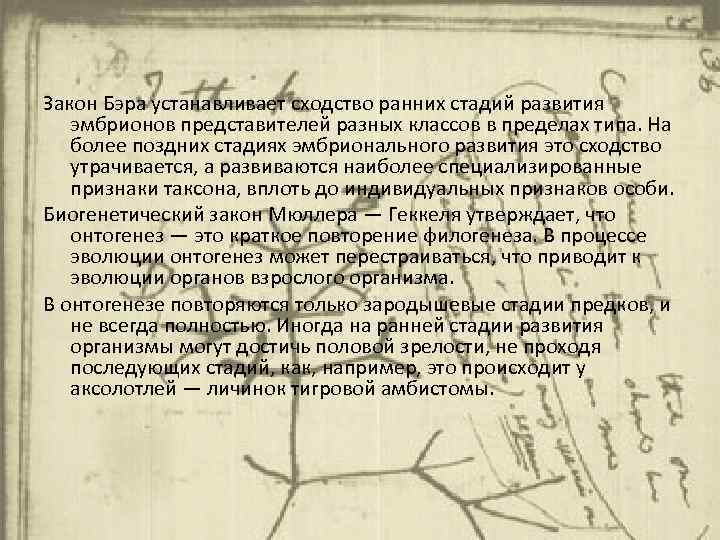 I think
Закон Бэра устанавливает сходство ранних стадий развития
эмбрионов представителей разных классов в пределах типа. На
более поздних стадиях эмбрионального развития это сходство
утрачивается, а развиваются наиболее специализированные
признаки таксона, вплоть до индивидуальных признаков особи.
Биогенетический закон Мюллера — Геккеля утверждает, что
онтогенез — это краткое повторение филогенеза. В процессе
эволюции онтогенез может перестраиваться, что приводит к
эволюции органов взрослого организма.
В онтогенезе повторяются только зародышевые стадии предков, и
не всегда полностью. Иногда на ранней стадии развития
организмы могут достичь половой зрелости, не проходя
последующих стадий, как, например, это происходит у
аксолотлей — личинок тигровой амбистомы.
36